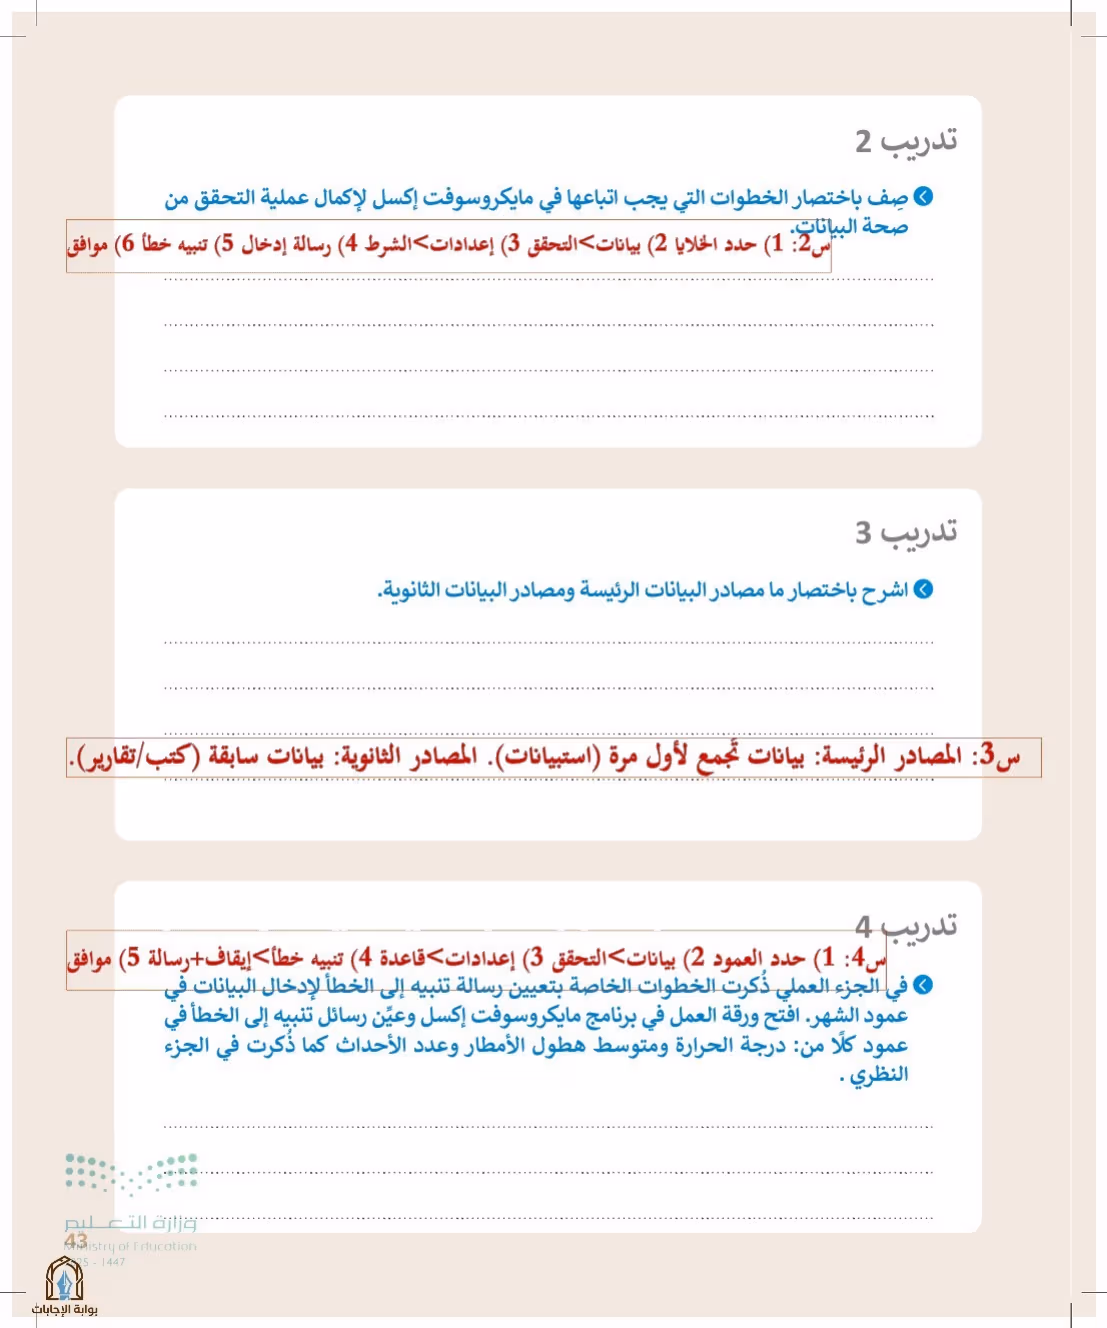 تدريب 2
صِف باختصار الخطوات التي يجب اتباعها في مايكروسوفت إكسل لإكمال عملية التحقق من
صحة البيانات.
س2: 1) حدد الخلايا 2) بيانات>التحقق 3) إعدادات>الشرط 4) رسالة إدخال 5) تنبيه خطأ 6) موافق
تدريب 3
اشرح باختصار ما مصادر البيانات الرئيسة ومصادر البيانات الثانوية.
س3: المصادر الرئيسة: بيانات تُجمع لأول مرة (استبيانات). المصادر الثانوية: بيانات سابقة (كتب/تقارير).
تدريب 4
س4: 1) حدد العمود 2) بيانات>التحقق 3) إعدادات>قاعدة 4) تنبيه خطأ>إيقاف+رسالة 5) موافق
في الجزء العملي ذُكرت الخطوات الخاصة بتعيين رسالة تنبيه إلى الخطأ لإدخال البيانات في
عمود الشهر. افتح ورقة العمل في برنامج مايكروسوفت إكسل وعيِّن رسائل تنبيه إلى الخطأ في
عمود كلًا من: درجة الحرارة ومتوسط هطول الأمطار وعدد الأحداث كما ذُكرت في الجزء
النظري .
وزارة التعليم
43
Ministry of Education
- 1447
بوابة الإجابات